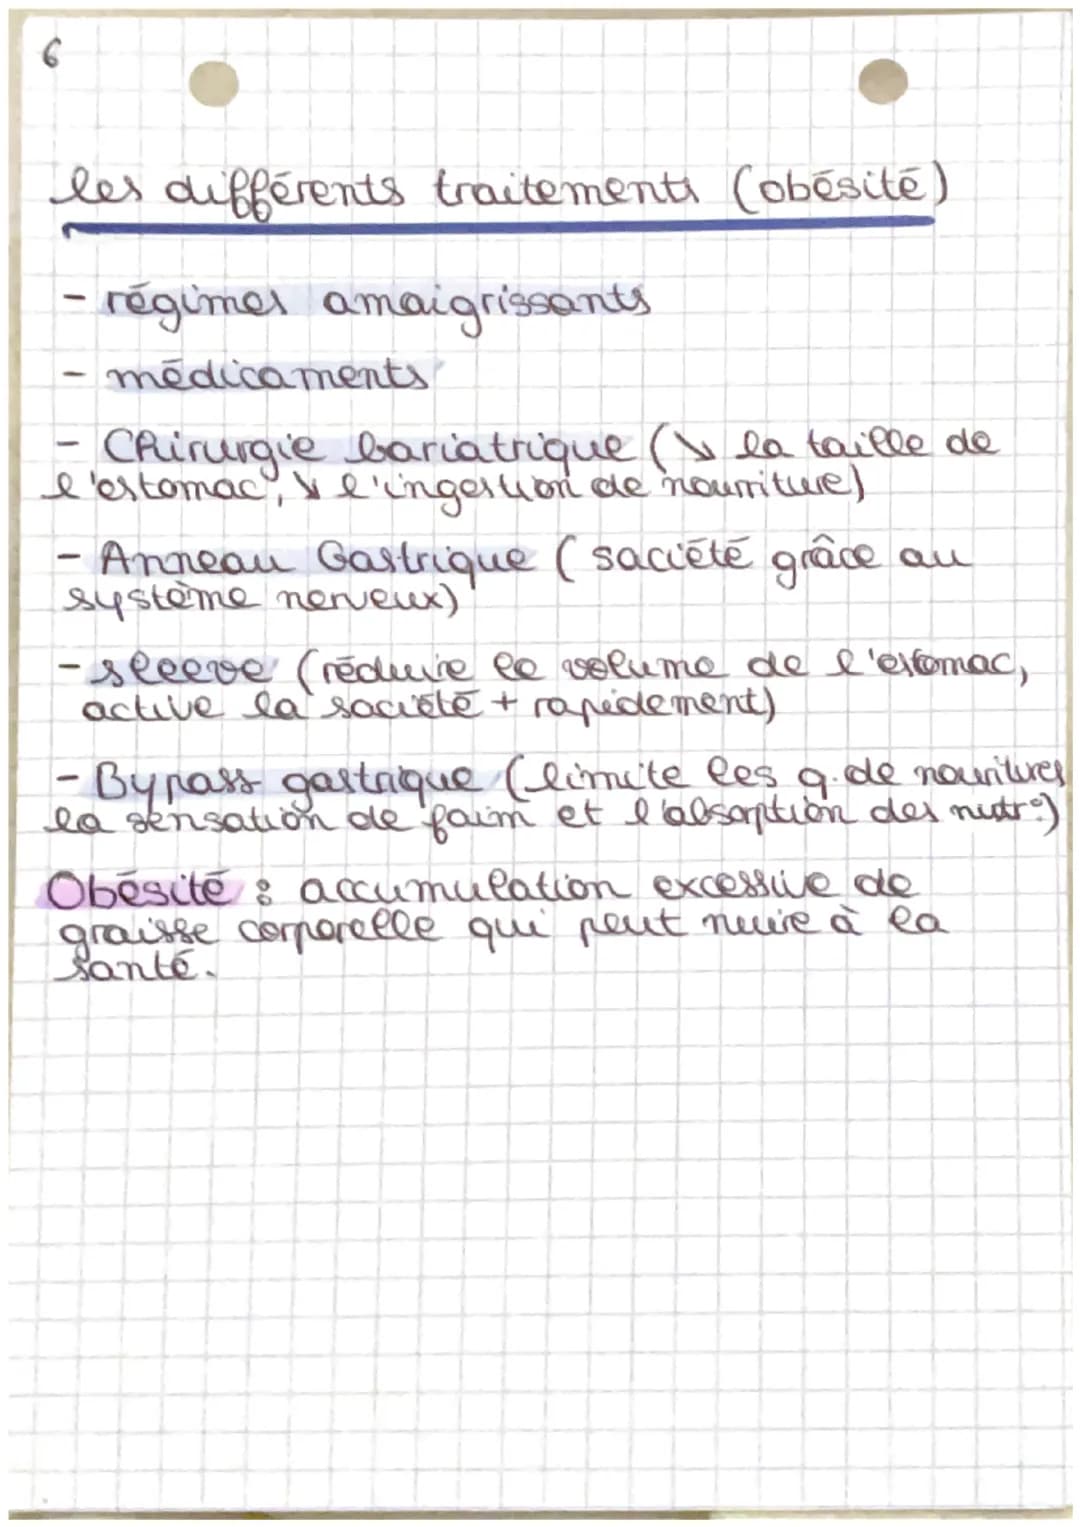 6
les différents traitements (obésité)
- régimes amaigrissants
- médicaments
- Chirurgie bariatrique (↘ la taille de
l'estomac, ↘ l'ingestion de nourriture)
- Anneau Gastrique (saciété grâce au
système nerveux)
- sleeve (réduire le volume de l'estomac,
active la saciété + rapidement)
- Bypass gastrique (limite les q. de nouritures
la sensation de faim et l'absorption des nutr°)
Obésité : accumulation excessive de
graisse corporelle qui peut nuire à la
santé.